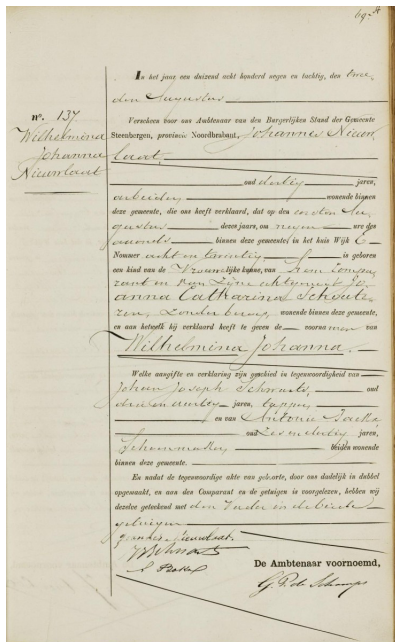 In het jaar een duizend acht honderd negen en tachtig, den twee
den Augustus
Verscheen voor ons Ambtenaar van den Burgerlijken Stand der Gemeente
Steenbergen, provincie Noordbrabant, Johannes Nieuw
laat,
oud dertig jaren,
arbeider wonende binnen
deze gemeente, die ons heeft verklaard, dat op den eersten Au
gustus dezes jaars, om negen ure des
avonds binnen deze gemeente in het huis Wijk E
Nommer acht en twintig, is geboren
een kind van de Vrouwelijke kunne, van hem Compa
rant en van zijne echtgenoot Jo
anna Catharina Schoute
ren, zonder beroep, wonende binnen deze gemeente,
en aan hetwelk hij verklaard heeft te geven de voornamen van
Wilhelmina Johanna.
Welke aangifte en verklaring zijn geschied in tegenwoordigheid van
Johan Joseph Schwarts, oud
jaren, tapper,
en van Antonie
oud Zes en dertig jaren,
Schoenmaker beiden wonende
binnen deze gemeente.
En nadat de tegenwoordige akte van geboorte, door ons dadelijk in dubbel
opgemaakt, en aan den Comparant en de getuigen is voorgelezen, hebben wij
dezelve geteekend met den Vader en de beide
getuigen
De Ambtenaar voornoemd,
no. 137.
Wilhelmina
Johanna
Nieuwlaat